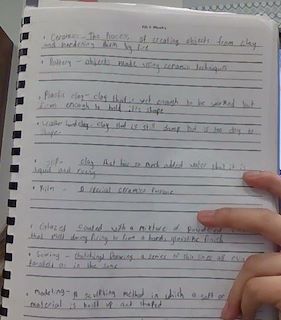 • Ceramics - The process of creating objects from clay
and hardening them by fire
• Pottery - objects made using ceramic techniques
• Plastic clay - clay that is wet enough to be worked but
firm enough to hold its shape
• Leather hard clay - clay that is still damp but is too dry to
shape
• slip - clay that has so much added water that it is
liquid and runny
• Kiln - A special ceramics furnace
• Glazed coated with a mixture of powdered
that melt during firing to form a hard, glasslike finish
• Scoring - (hatching) Drawing a series of thin lines all
parallel or in the same
• modeling - A sculpting method in which a soft or
material is built up and shaped